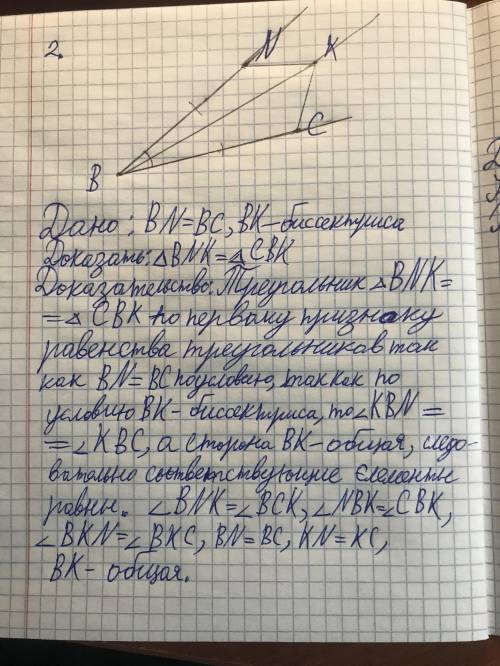 2.
N K
C
B
Дано: BN=BC, BK-биссектриса
Доказать: △BNK=△CBK
Доказательство: Треугольник △BNK=
=△ CBK по первому признаку
равенства треугольников так
как BN=BC по условию, так как по
условию BK-биссектриса, то ∠KBN=
=∠KBC, а сторона BK-общая, следо-
вательно соответствующие елементы
равны. ∠BNK=∠BCK, ∠NBK=∠CBK,
∠BKN=∠BKC, BN=BC, KN=KC,
BK-общая.